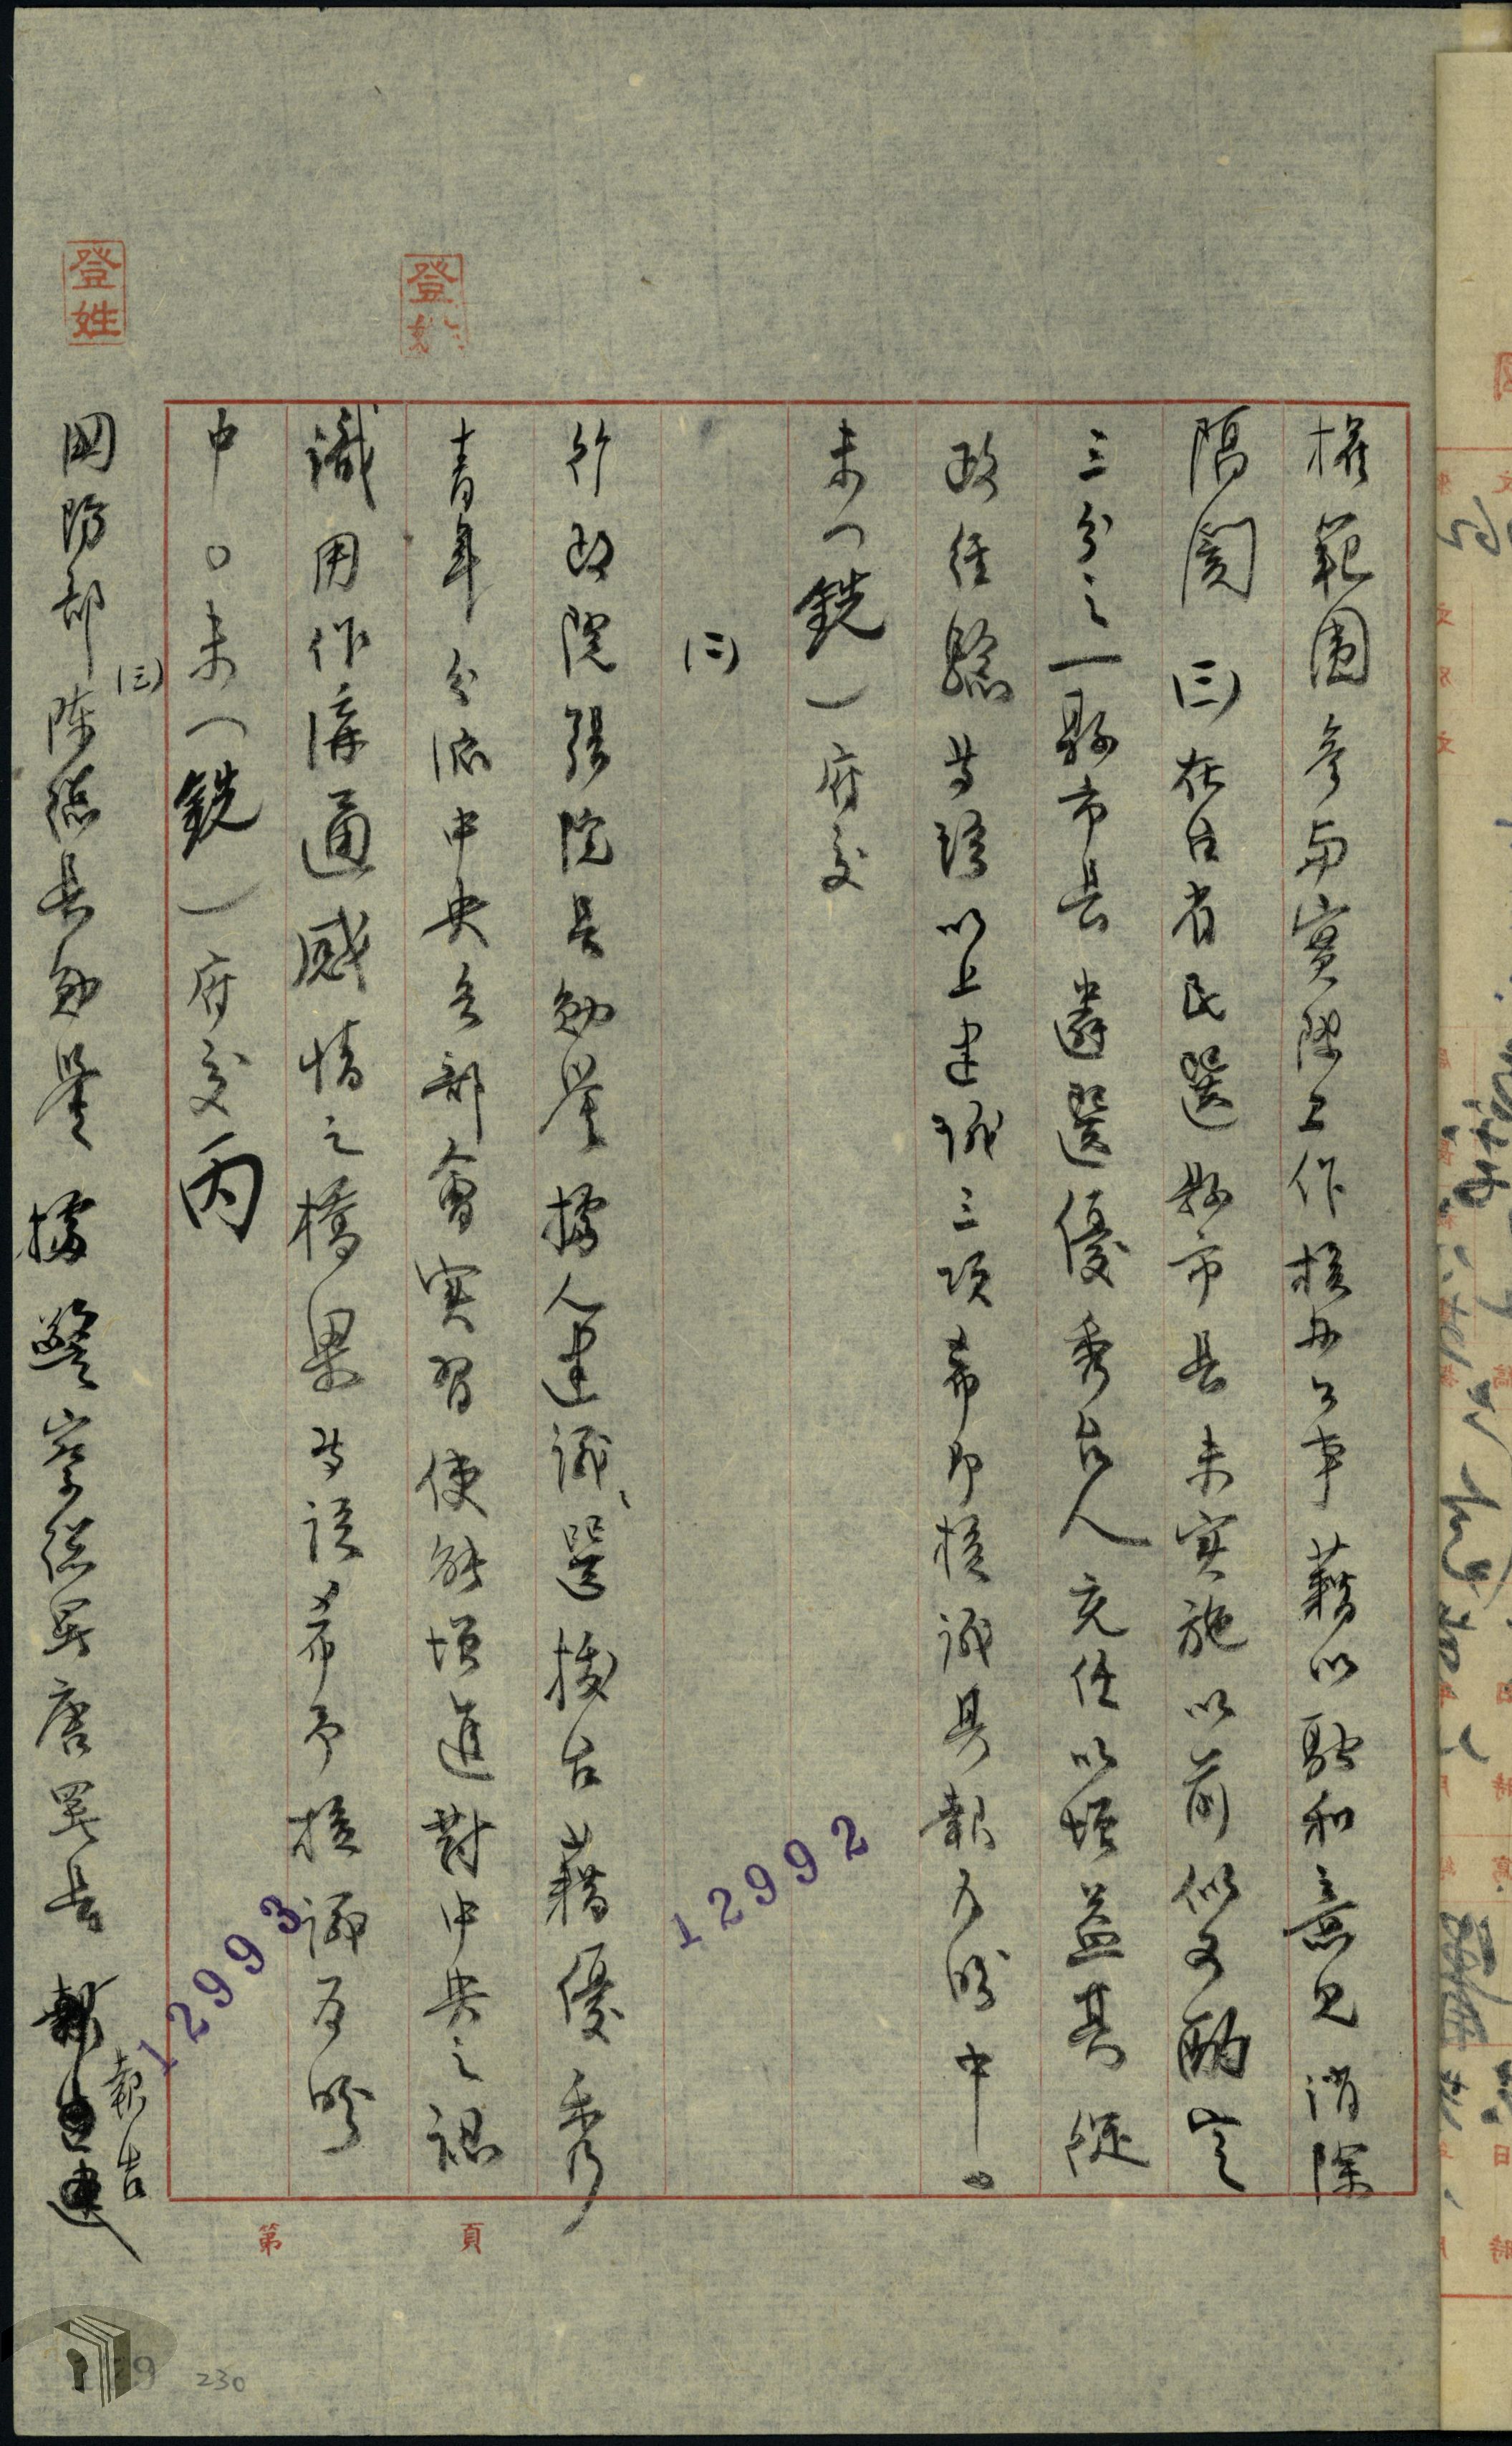 權範圍參與實際工作核辦公事藉以融和意見消除
隔閡 (三)在台省民選縣市長未實施以前似可酌定
三分之一縣市長遴選優秀台人充任以增益其從
政經驗等語以上建議三項希即核議具報為盼中○
未(銑)府交
(二)
行政院張院長勛鑒據人建議選拔台籍優秀
青年分派中央各部會實習使能增進對中央之認
識用作溝通感情之橋樑等語希予核議為盼
中○未(銑)府交丙
(三)
國防部陳總長勛鑒據警察總署唐署長報告
登姓
登
12992
12993
第 頁
230